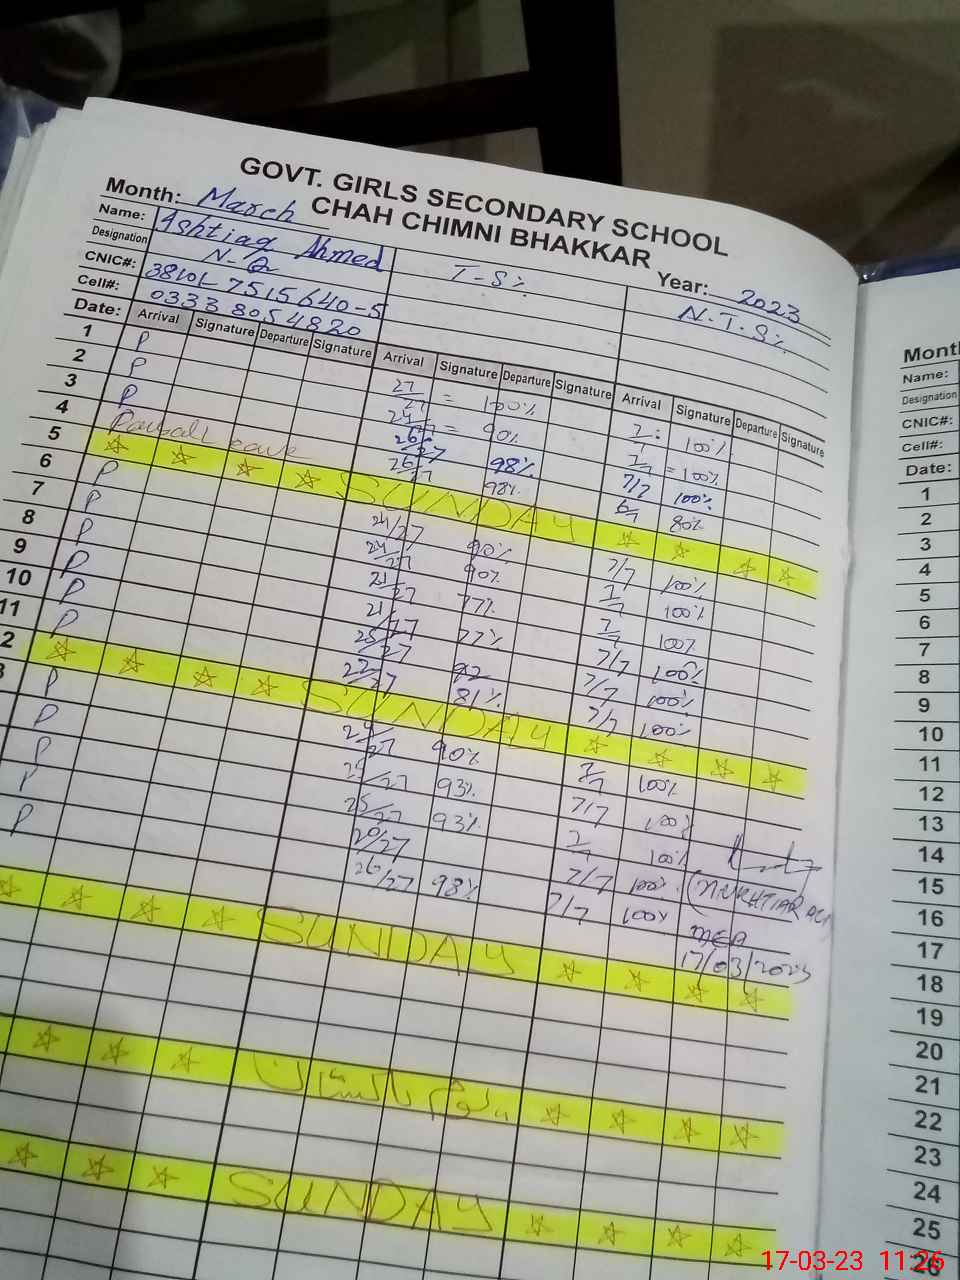 GOVT. GIRLS SECONDARY SCHOOL
CHAH CHIMNI BHAKKAR
Month: March
Year: 2023
Name: Ashtiaq Ahmed
Designation N-Q
T-S%
N.T.S%
CNIC#: 38101-7515640-5
Cell#: 0333 8054820
Date: Arrival Signature Departure Signature Arrival Signature Departure Signature Arrival Signature Departure Signature
1 P 27/27 = 100% 7/7 : 100%
2 P 24/27 = 90% 7/7 = 100%
3 P 26/27 98% 7/7 100%
4 26/27 98% 6/7 80%
5 SUNDAY
6 P 24/27 90% 7/7 100%
7 P 24/27 90% 7/7 100%
8 P 21/27 77% 7/7 100%
9 P 21/27 77% 7/7 100%
10 P 25/27 92 7/7 100%
11 P 22/27 81% 7/7 100%
2 SUNDAY
3 P 90% 7/7 100%
P 25/27 93% 7/7 100%
P 25/27 93% 7/7 100%
P 20/27 7/7 100%
P 26/27 98% 7/7 100%
(MUKHTIAR ALI)
MEA
17/03/2023
SUNDAY
یوم پاکستان
SUNDAY
Month
Name:
Designation
CNIC#:
Cell#:
Date:
1
2
3
4
5
6
7
8
9
10
11
12
13
14
15
16
17
18
19
20
21
22
23
24
25
26
17-03-23 11:26